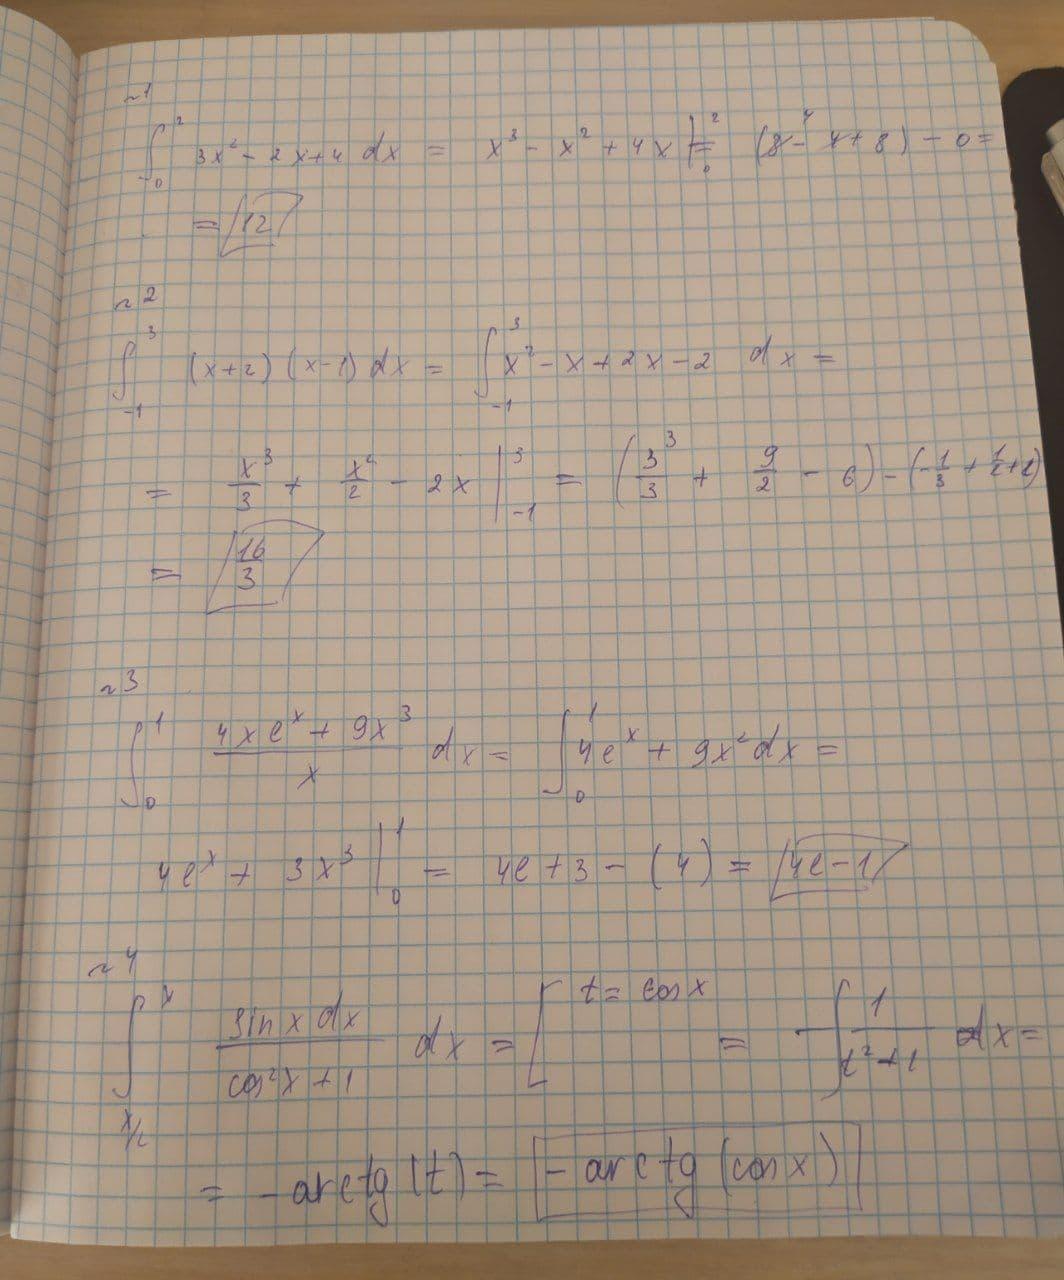 ~1
∫₀² 3x² - 2x + 4 dx = x³ - x² + 4x |₀² = (8 - 4 + 8) - 0 =
= 12
~2
∫₋₁³ (x+2)(x-1) dx = ∫₋₁³ x² - x + 2x - 2 dx =
= x³/3 + x²/2 - 2x |₋₁³ = (3³/3 + 9/2 - 6) - (-1/3 + 1/2 + 2)
= 16/3
~3
∫₀¹ (4xeˣ + 9x³)/x dx = ∫₀¹ 4eˣ + 9x² dx =
4eˣ + 3x³ |₀¹ = 4e + 3 - (4) = 4e - 1
~4
∫ sin x dx/(cos²x + 1) dx = [ t = cos x = - ∫ 1/(t² + 1) dx =
= - arctg(t) = - arctg(cos x)